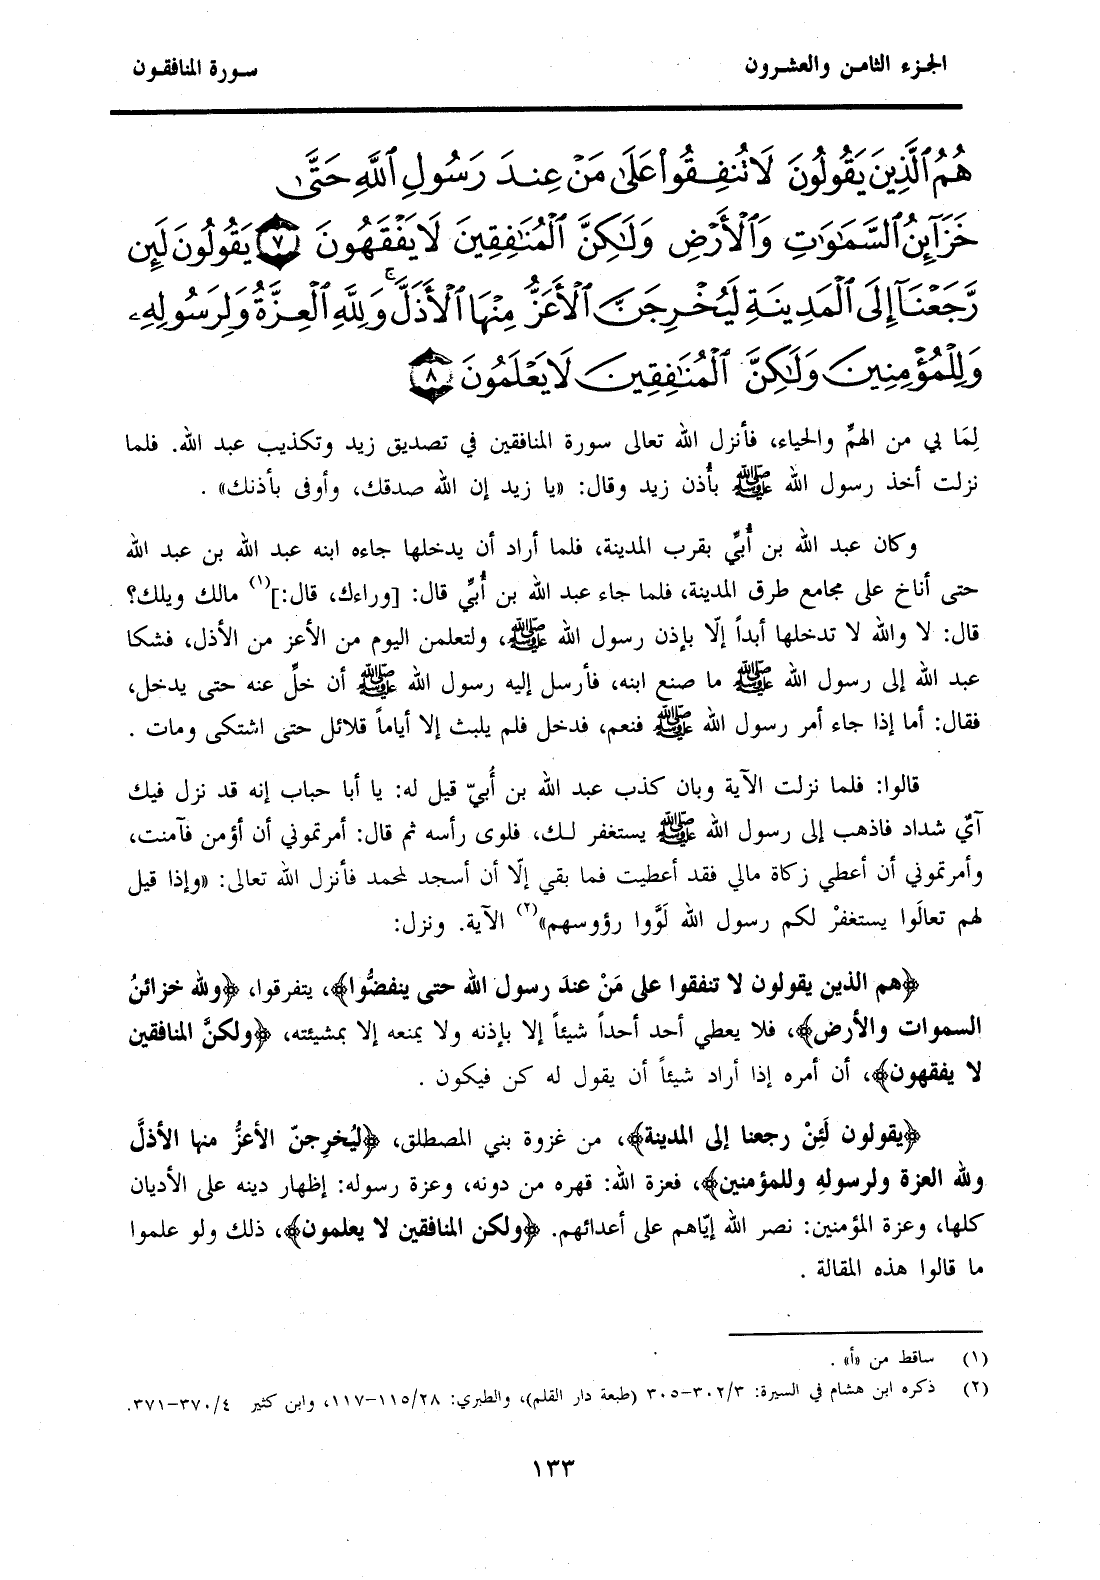 الجزء الثامن والعشرون
سورة المنافقون
هُمُ ٱلَّذِينَ يَقُولُونَ لَا تُنفِقُوا۟ عَلَىٰ مَنْ عِندَ رَسُولِ ٱللَّهِ حَتَّىٰ
خَزَآئِنُ ٱلسَّمَٰوَٰتِ وَٱلْأَرْضِ وَلَٰكِنَّ ٱلْمُنَٰفِقِينَ لَا يَفْقَهُونَ ٧ يَقُولُونَ لَئِن
رَّجَعْنَآ إِلَى ٱلْمَدِينَةِ لَيُخْرِجَنَّ ٱلْأَعَزُّ مِنْهَا ٱلْأَذَلَّ ۚ وَلِلَّهِ ٱلْعِزَّةُ وَلِرَسُولِهِۦ
وَلِلْمُؤْمِنِينَ وَلَٰكِنَّ ٱلْمُنَٰفِقِينَ لَا يَعْلَمُونَ ٨
لِمَا بي من الهمِّ والحياء، فأنزل الله تعالى سورة المنافقين في تصديق زيد وتكذيب عبد الله. فلما
نزلت أخذ رسول الله ﷺ بأُذن زيد وقال: «يا زيد إن الله صدقك، وأوفى بأذنك» .
وكان عبد الله بن أُبيِّ بقرب المدينة، فلما أراد أن يدخلها جاءه ابنه عبد الله بن عبد الله
حتى أناخ على مجامع طرق المدينة، فلما جاء عبد الله بن أُبيِّ قال: [وراءك، قال:](١) مالك ويلك؟
قال: لا والله لا تدخلها أبداً إلّا بإذن رسول الله ﷺ، ولتعلمن اليوم من الأعز من الأذل، فشكا
عبد الله إلى رسول الله ﷺ ما صنع ابنه، فأرسل إليه رسول الله ﷺ أن خلِّ عنه حتى يدخل،
فقال: أما إذا جاء أمر رسول الله ﷺ فنعم، فدخل فلم يلبث إلا أياماً قلائل حتى اشتكى ومات .
قالوا: فلما نزلت الآية وبان كذب عبد الله بن أُبيّ قيل له: يا أبا حباب إنه قد نزل فيك
آيٌ شداد فاذهب إلى رسول الله ﷺ يستغفر لك، فلوى رأسه ثم قال: أمرتموني أن أؤمن فآمنت،
وأمرتموني أن أعطي زكاة مالي فقد أعطيت فما بقي إلّا أن أسجد لمحمد فأنزل الله تعالى: «وإذا قيل
لهم تعالَوا يستغفرْ لكم رسول الله لَوَّوا رؤوسهم»(٢) الآية. ونزل:
﴿هم الذين يقولون لا تنفقوا على مَنْ عندَ رسول الله حتى ينفضُّوا﴾، يتفرقوا، ﴿ولله خزائنُ
السموات والأرض﴾، فلا يعطي أحد أحداً شيئاً إلا بإذنه ولا يمنعه إلا بمشيئته، ﴿ولكنَّ المنافقين
لا يفقهون﴾، أن أمره إذا أراد شيئاً أن يقول له كن فيكون .
﴿يقولون لَئِنْ رجعنا إلى المدينة﴾، من غزوة بني المصطلق، ﴿ليُخرِجنّ الأعزُّ منها الأذلَّ
ولله العزة ولرسولهِ وللمؤمنين﴾، فعزة الله: قهره من دونه، وعزة رسوله: إظهار دينه على الأديان
كلها، وعزة المؤمنين: نصر الله إيّاهم على أعدائهم. ﴿ولكن المنافقين لا يعلمون﴾، ذلك ولو علموا
ما قالوا هذه المقالة .
(١) ساقط من «أ» .
(٢) ذكره ابن هشام في السيرة: ٣/ ٣٠٢-٣٠٥ (طبعة دار القلم)، والطبري: ٢٨/ ١١٥-١١٧، وابن كثير ٤/ ٣٧٠-٣٧١.
١٣٣